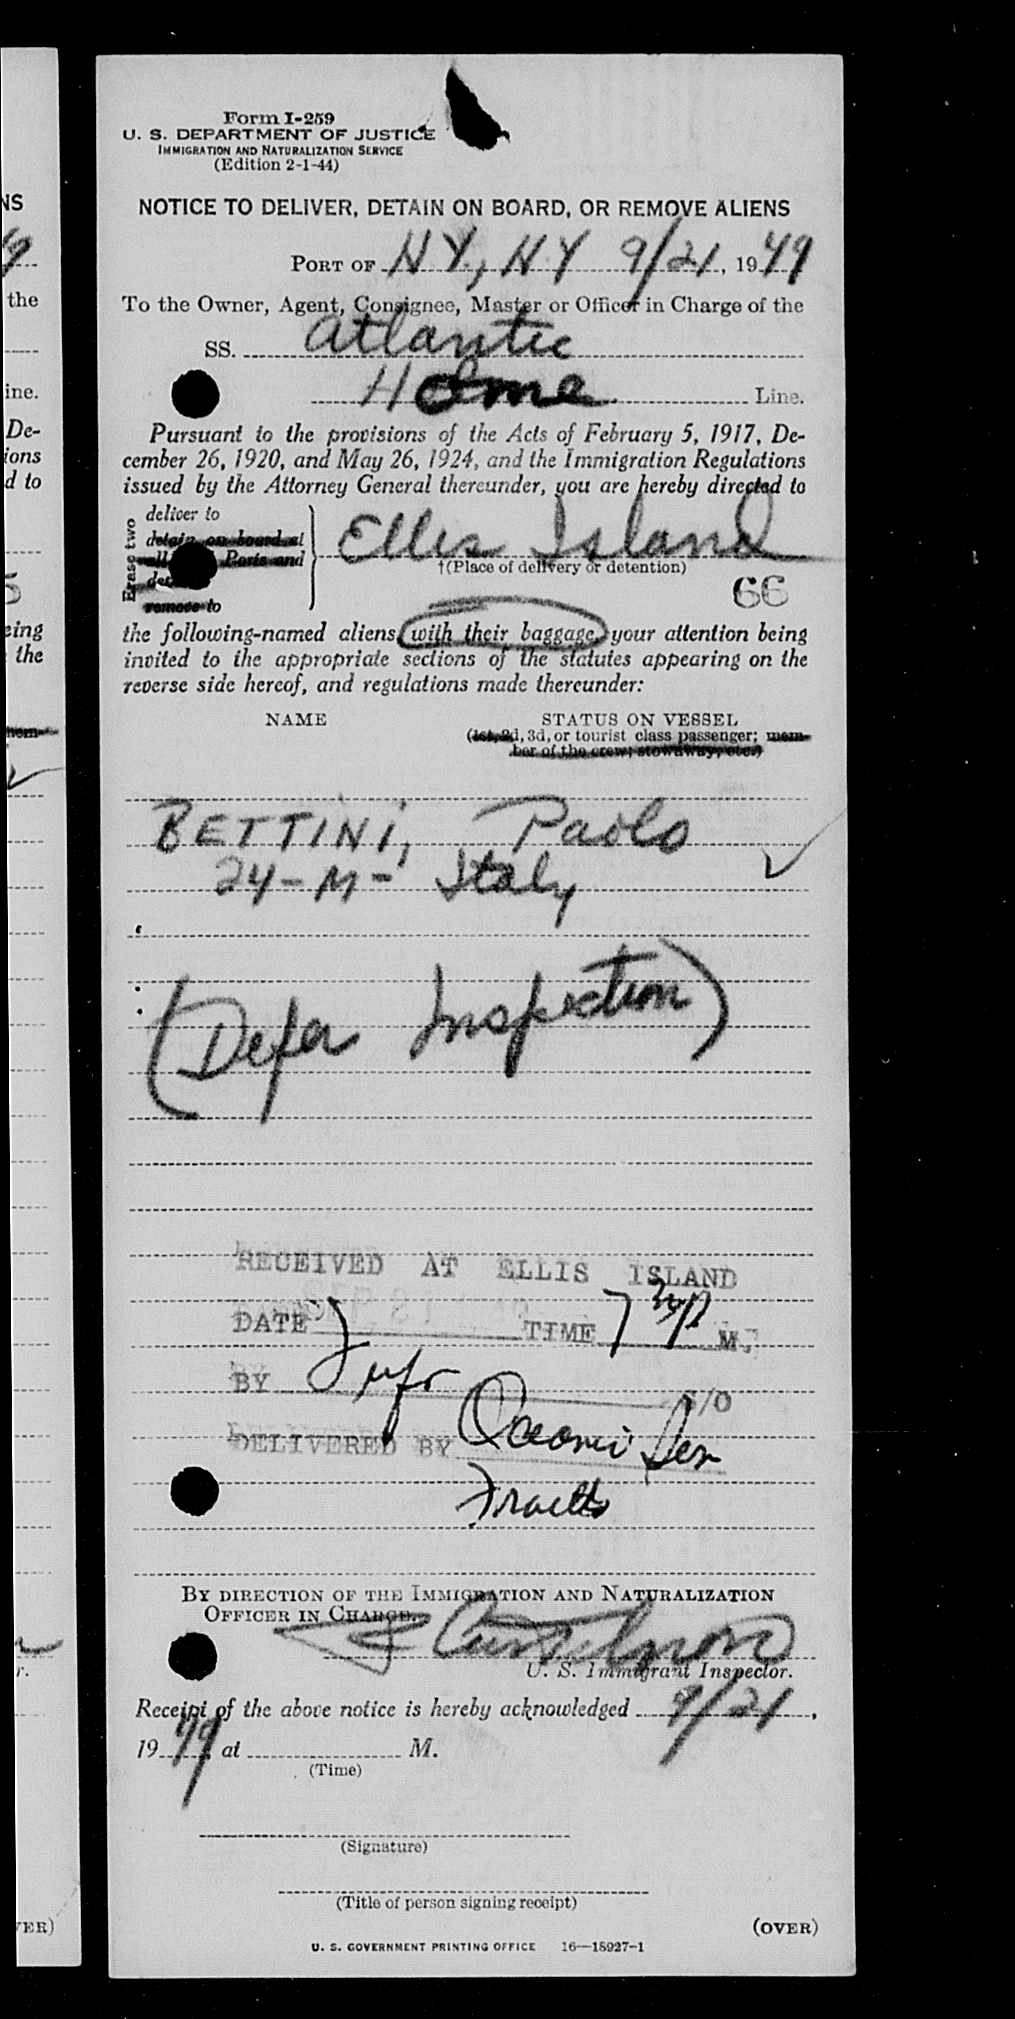 Form I-259
U. S. DEPARTMENT OF JUSTICE
IMMIGRATION AND NATURALIZATION SERVICE
(Edition 2-1-44)
NOTICE TO DELIVER, DETAIN ON BOARD, OR REMOVE ALIENS
PORT OF NY, NY 9/21, 1949
To the Owner, Agent, Consignee, Master or Officer in Charge of the
SS. Atlantic
Home Line.
Pursuant to the provisions of the Acts of February 5, 1917, De-
cember 26, 1920, and May 26, 1924, and the Immigration Regulations
issued by the Attorney General thereunder, you are hereby directed to
Erase two
deliver to
detain on board at
Ports and
remove to
Ellis Island
†(Place of delivery or detention)
66
the following-named aliens, with their baggage, your attention being
invited to the appropriate sections of the statutes appearing on the
reverse side hereof, and regulations made thereunder:
NAME
STATUS ON VESSEL
(1st, 2d, 3d, or tourist class passenger; mem-
ber of the crew; stowaway, etc.)
BETTINI, Paolo
24-M- Italy
(Defer Inspection)
RECEIVED AT ELLIS ISLAND
DATE SEP 21 TIME 7 30 P M.
BY S/O
DELIVERED BY
BY DIRECTION OF THE IMMIGRATION AND NATURALIZATION
OFFICER IN CHARGE.
U. S. Immigrant Inspector.
Receipt of the above notice is hereby acknowledged 9/21,
1949 at M.
(Time)
(Signature)
(Title of person signing receipt)
(OVER)
U. S. GOVERNMENT PRINTING OFFICE 16—18927-1
NS
the
ine.
De-
ions
d to
5
eing
the
mem-
r.
VER)